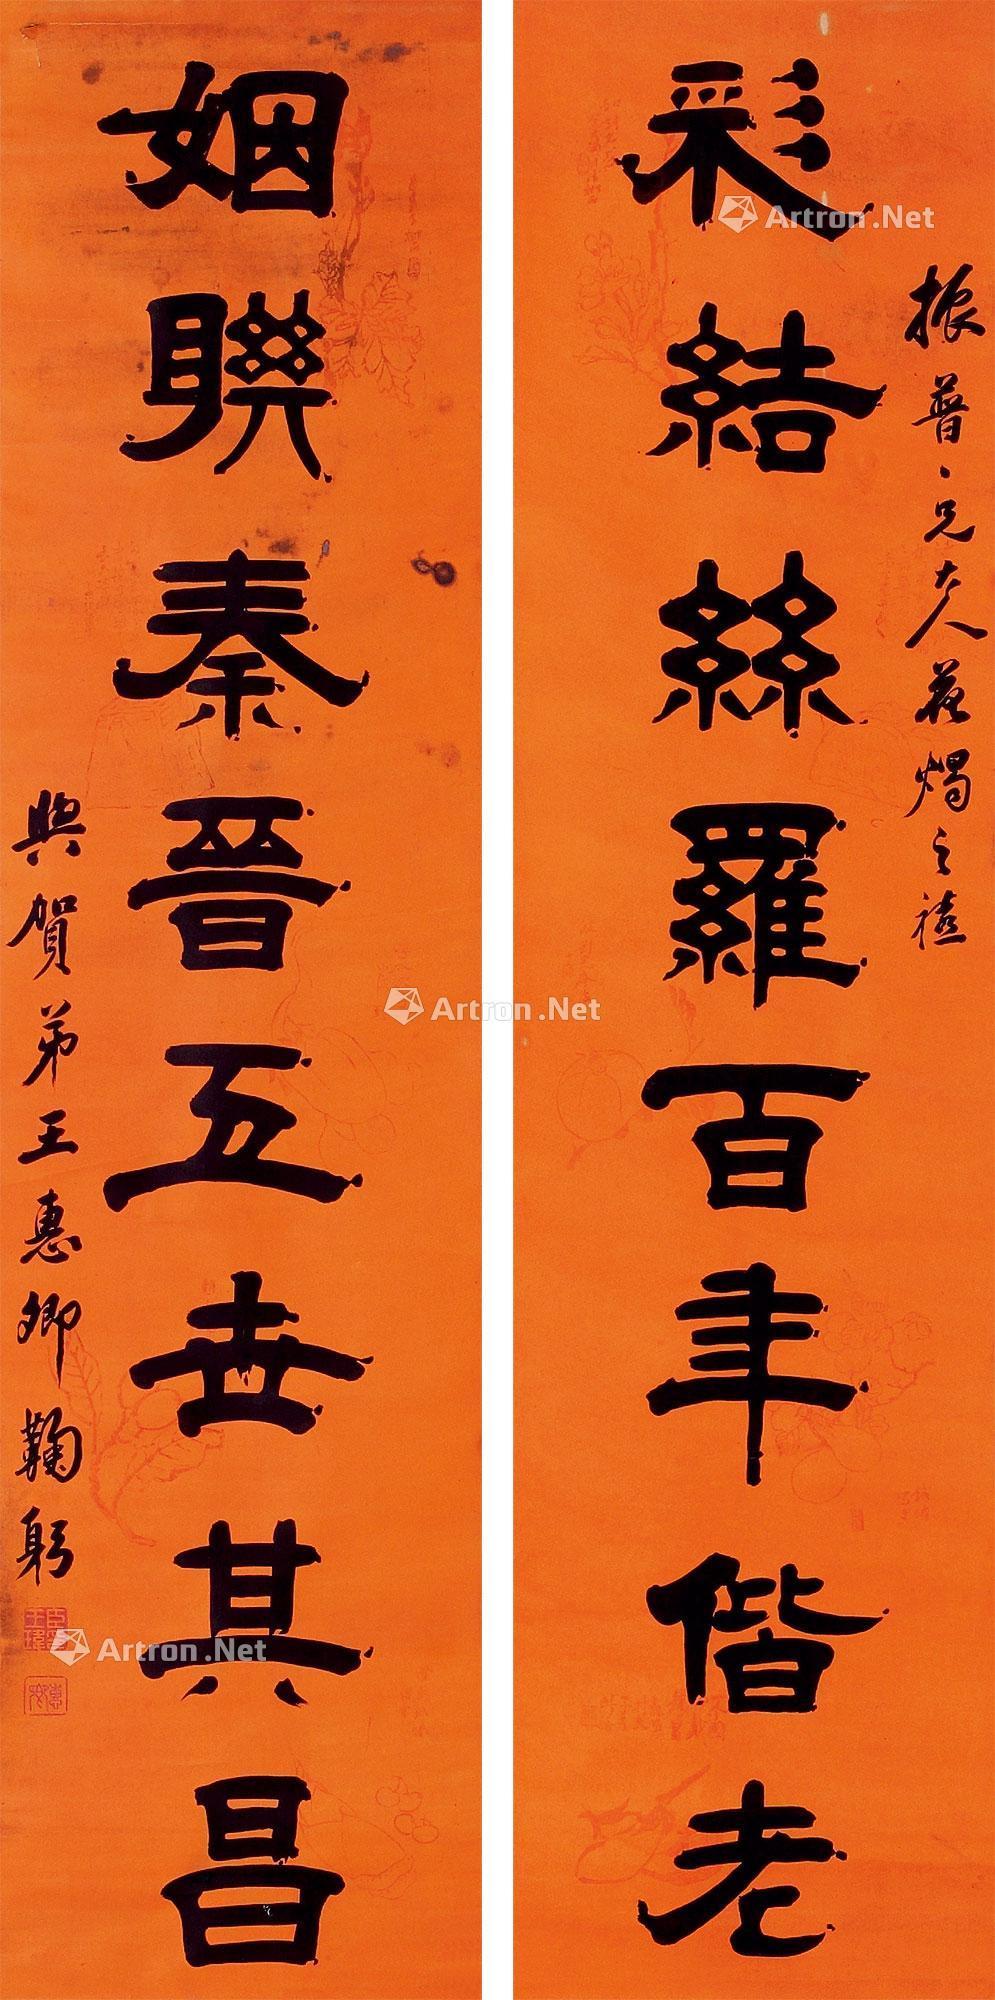 振普仁兄大人花燭之禧
彩結絲羅百年偕老
姻聯秦晉五世其昌
與賀弟王惠卿鞠躬
Artron.Net
Artron.Net
Artron.Net